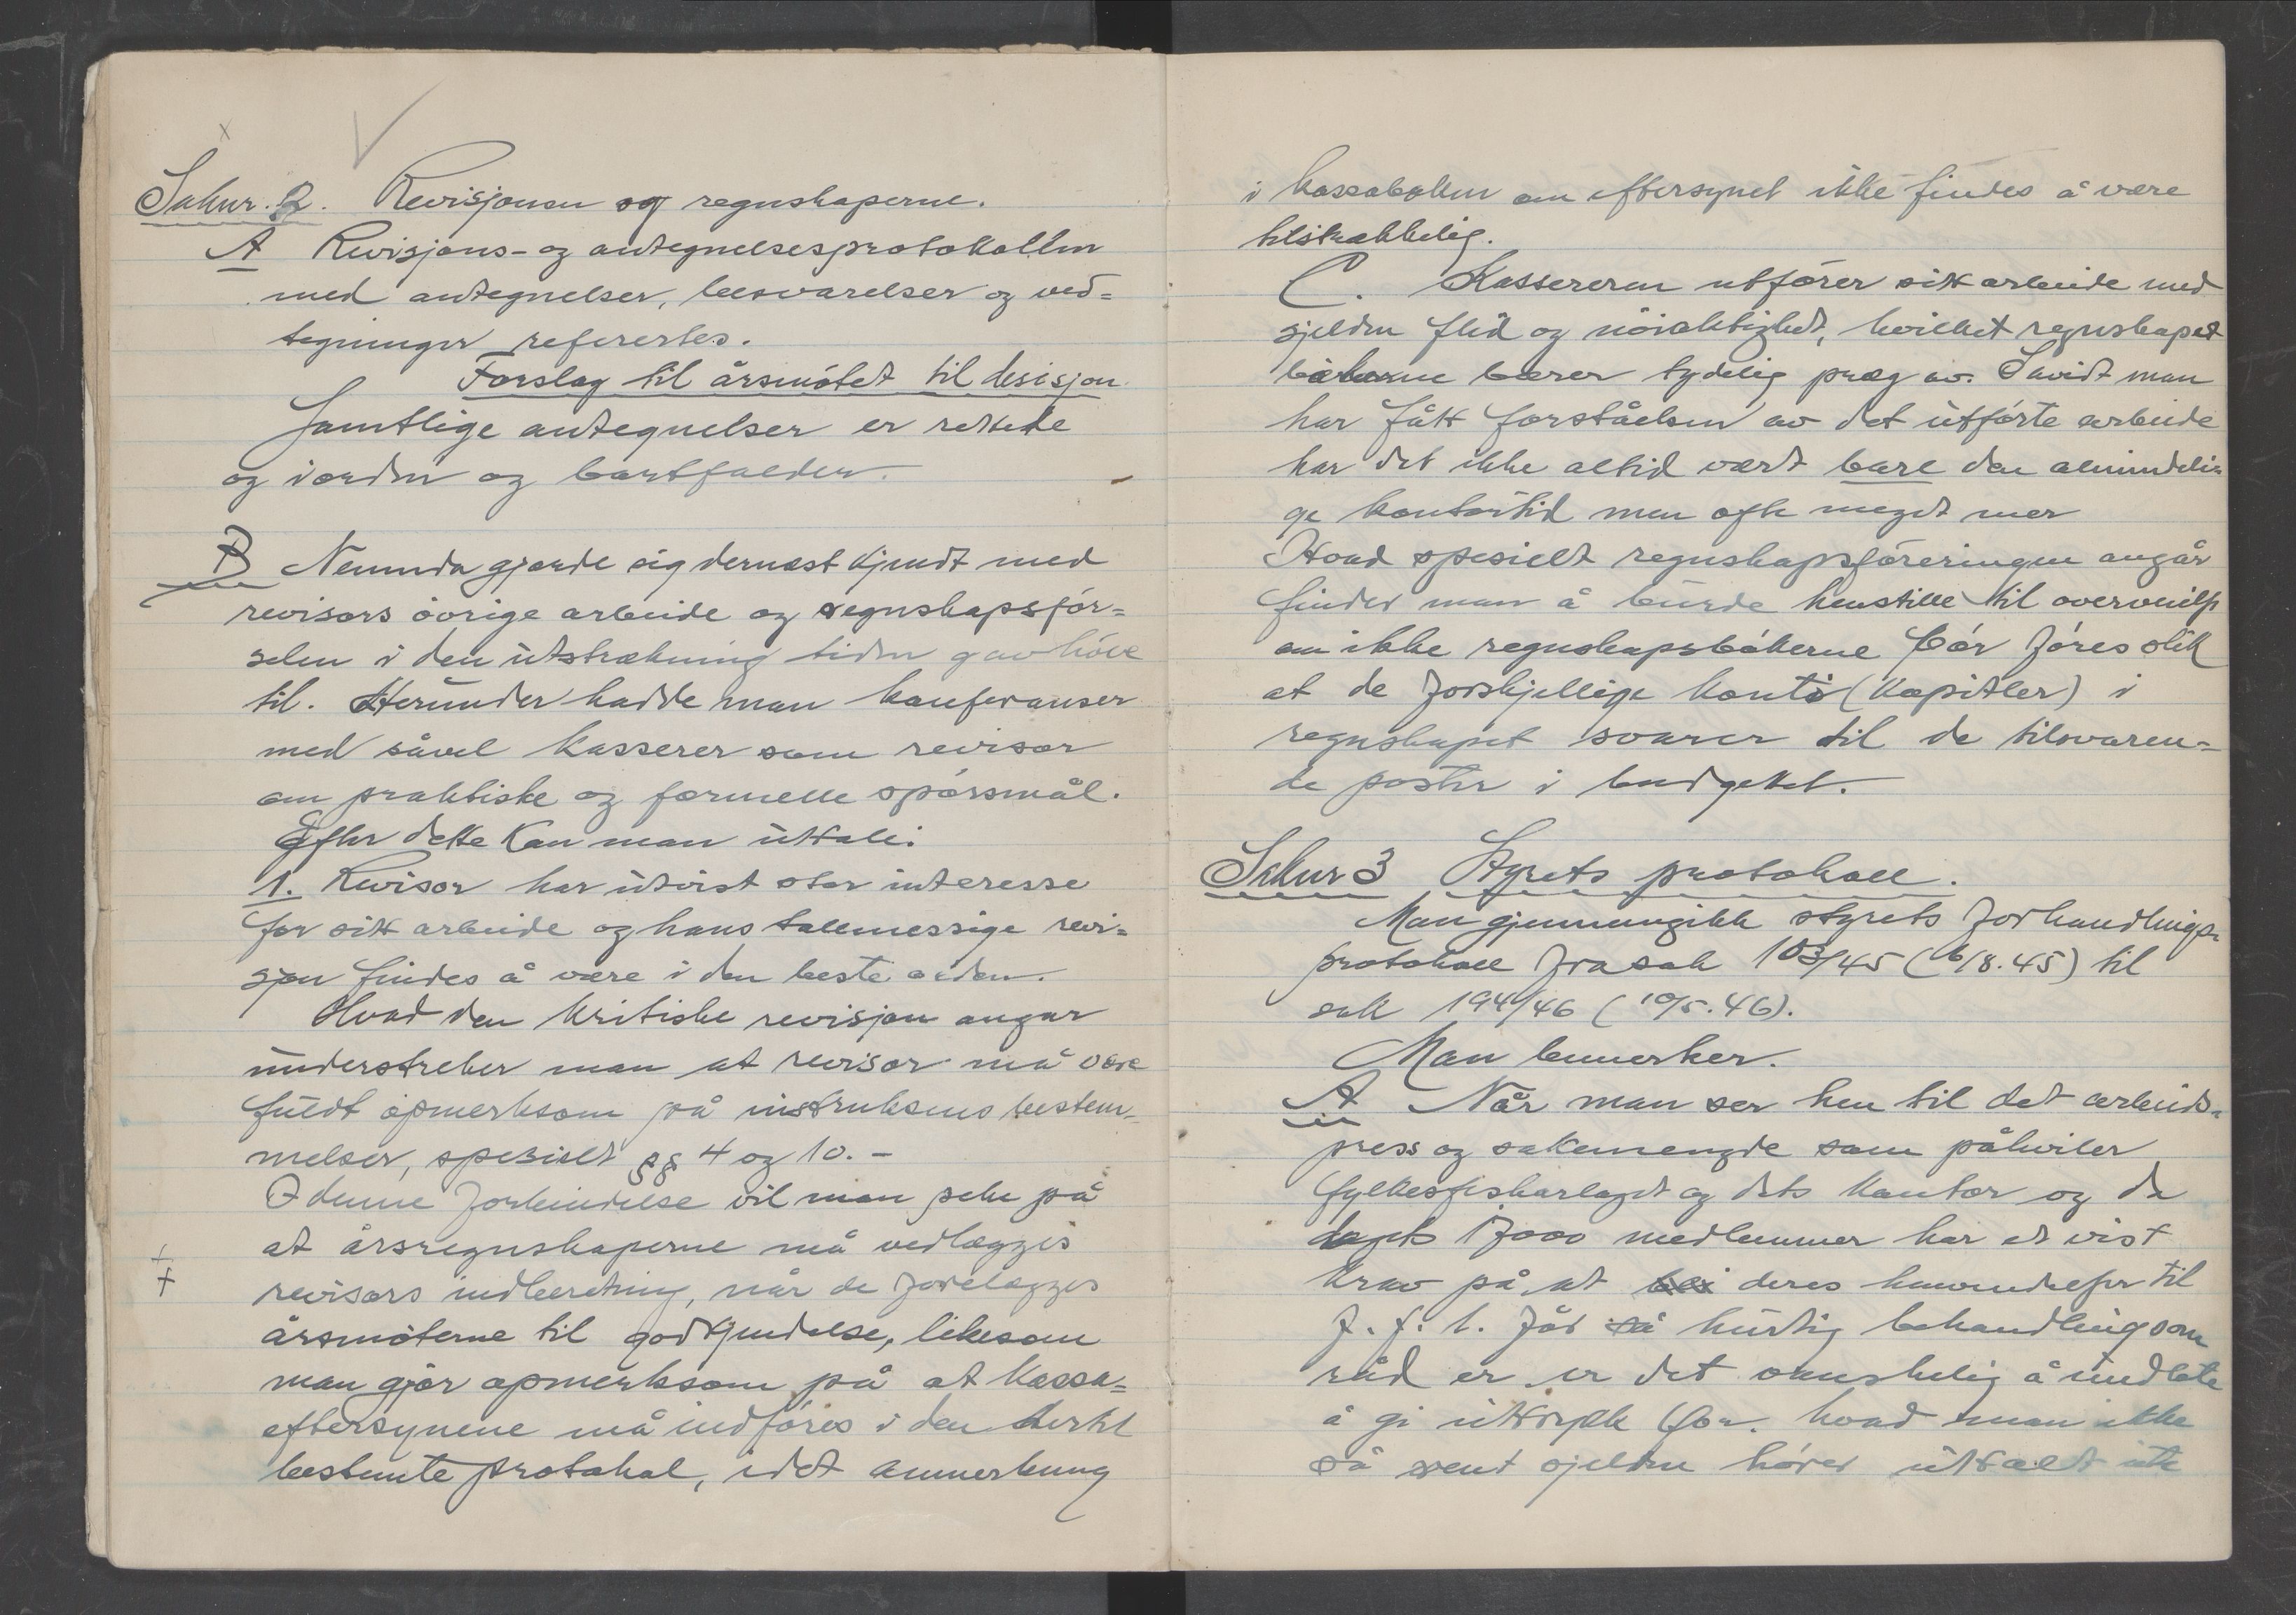 Saknr. 2. Revisjonen og regnskaperne.
A Revisjons- og antegnelsesprotokollen
med antegnelser, besvarelser og ved=
tegninger refertes.
Forslag til årsmötet til desisjon
Samtlige antegnelser er rettede
og iorden og bortfalder.
B Nemnda gjorde sig dernæst kjendt med
revisors övrige arbeide og regnskapsför=
selen i den utstrækning tiden gav höve
til. Herunder hadde man konferanser
med såvel kasserer som revisor
om praktiske og formelle spörsmål.
Efter dette kan man uttale:
1. Revisor har utvist stor interesse
for sitt arbeide og hans tallmessige revi=
sjon findes å være i den beste orden.
Hvad den kritiske revisjon angår
understreker man at revisor må være
fuldt opmerksom på instruksens bestem=
melser, spesielt §§ 4 og 10. -
I denne forbindelse vil man peke på
at årsregnskaperne må vedlægges
revisors indberetning, når de forelægges
årsmöterne til godkjendelse, likesom
man gjör opmerksom på at kassa=
eftersynene må indföres i den dertil
bestemte protokol, idet anmerkning
i kassaboken om eftersynet ikke findes å være
tilstrækkelig.
C. Kassereren utförer sitt arbeide med
sjelden flid og nöiaktighet, hvilket regnskapet
bökerne bærer tydelig præg av. Såvidt man
har fått forståelsen av det utförte arbeide
har det ikke altid vært bare den almindeli=
ge kontortid men ofte meget mer
Hvad spesielt regnskapsföreringen angår
finder man å burde henstille til overveielse
om ikke regnskapsbökerne bör föres slik
at de forskjellige konti (kapitler) i
regnskapet svarer til de tilsvaren=
de poster i budgettet.
Saknr 3 Styrets protokoll.
Man gjennemgikk styrets forhandlings=
protokoll fra sak 103/45 (6/8.45) til
sak 194/46 (10/5.46).
Man bemerker.
A Når man ser hen til det arbeids=
press og sakemengde som påhviler
fylkesfiskarlaget og dets kontor og da
lagets 17000 medlemmer har et visst
krav på at deres henvendelser til
f. f. l. får så hurtig behandling som
råd er er det vanskelig å undlate
å gi uttrykk for. hvad man ikke
så sent sjelden hörer uttalt ute